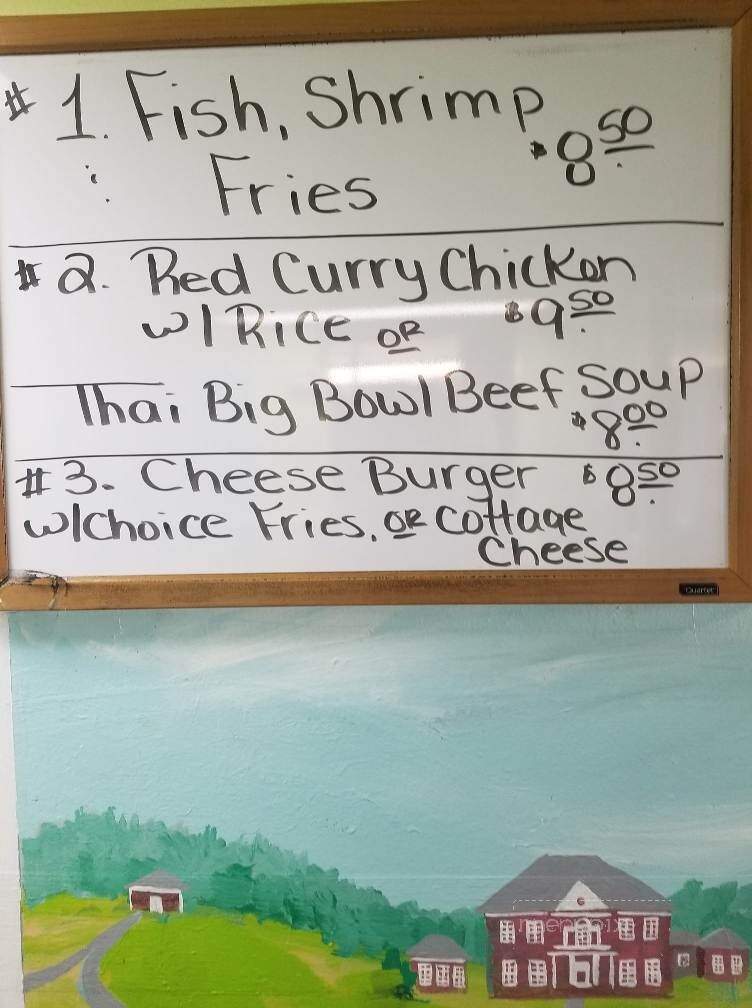 # 1. Fish, Shrimp
Fries $8.50
# 2. Red Curry Chicken
w/ Rice OR $9.50
Thai Big Bowl Beef Soup
$8.00
# 3. Cheese Burger $8.50
w/choice Fries, OR Cottage
Cheese
Quartet